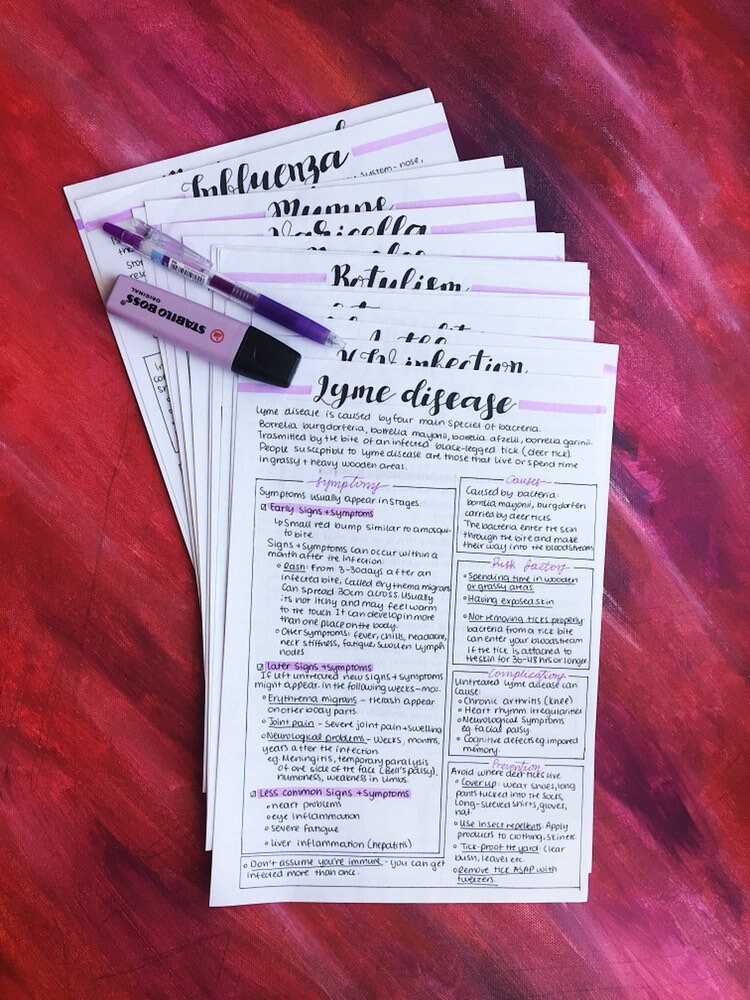 Influenza
system - nose,
Mumps
Varicella
Botulism
infection
STABILO BOSS
ORIGINAL
Lyme disease
Lyme disease is caused by four main species of bacteria.
Borrelia burgdorferia, borrelia mayonii, borrelia afzelii, borrelia garinii.
Trasmitted by the bite of an infected black-legged tick (deer tick).
People susceptible to Lyme disease are those that live or spend time
in grassy + heavy wooden areas.
Symptoms
Symptoms usually appear in stages.
Early signs + symptoms
↳ Small red bump similar to a mosquito
bite.
Signs + Symptoms can occur within a
month after the infection:
Rash: From 3-30days after an
infected bite, called erythema migrans
Can spread 30cm across. Usually
its not itchy and may feel warm
to the touch. It can develop in more
than one place on the body.
Other symptoms: fever, chills, headache,
neck stiffness, fatigue, swollen lymph
nodes
Later signs + symptoms
If left untreated new signs + symptoms
might appear. In the following weeks-
Erythema migrans - the rash appear
on other body parts.
Joint pain - severe joint pain + swelling
Neurological problems - weeks, months,
years after the infection
eg. Meningitis, temporary paralysis
of one side of the face (Bell's palsy),
numbness, weakness in limbs.
Less common signs + symptoms
heart problems
eye inflammation
severe fatigue
liver inflammation (hepatitis)
Don't assume you're immune - you can get
infected more than once.
Causes
Caused by bacteria:
borrelia mayonii, burgdorferi
carried by deer ticks
The bacteria enter the skin
through the bite and make
their way into the bloodstream
Risk factors
Spending time in wooden
or grassy areas.
Having exposed skin
Not removing ticks properly
bacteria from a tick bite
can enter your bloodstream
if the tick is attached to
the skin for 36-48 hrs or longer
Complications
Untreated Lyme disease can
cause:
Chronic arthritis (knee)
Heart rhythm irregularities
Neurological symptoms
eg. facial palsy.
Cognitive defects eg. impared
memory.
Prevention
Avoid where deer ticks live
Cover up: wear shoes, long
pants tucked into the socks,
long-sleeved shirts, gloves,
hat.
Use insect repellents: Apply
products to clothing, skin etc.
Tick-proof the yard: clear
bush, leaves etc.
Remove tick ASAP with
tweezers.